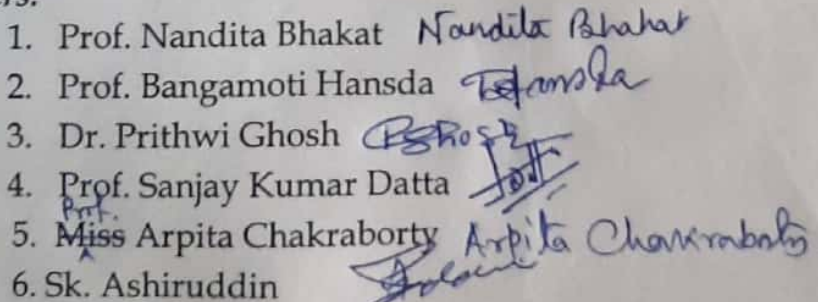 1. Prof. Nandita Bhakat Nandita Bhakat
2. Prof. Bangamoti Hansda BHansda
3. Dr. Prithwi Ghosh PGhosh
4. Prof. Sanjay Kumar Datta
Prof.
5. Miss Arpita Chakraborty Arpita Chakraborty
6. Sk. Ashiruddin